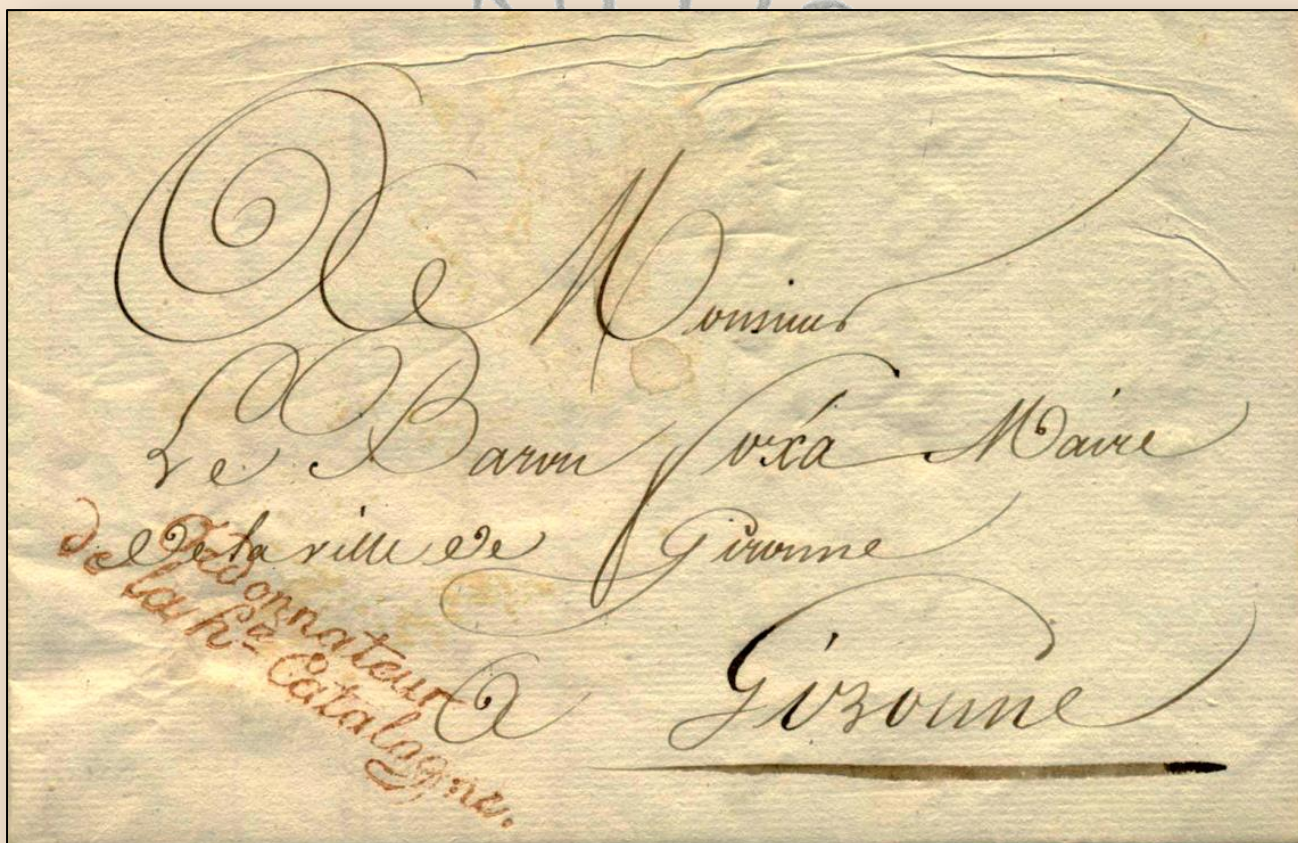 A Monsieur
Le Baron foxá Maire
de la ville de Gironne
a Gironne
Ordonnateur
de la hte Catalogne.